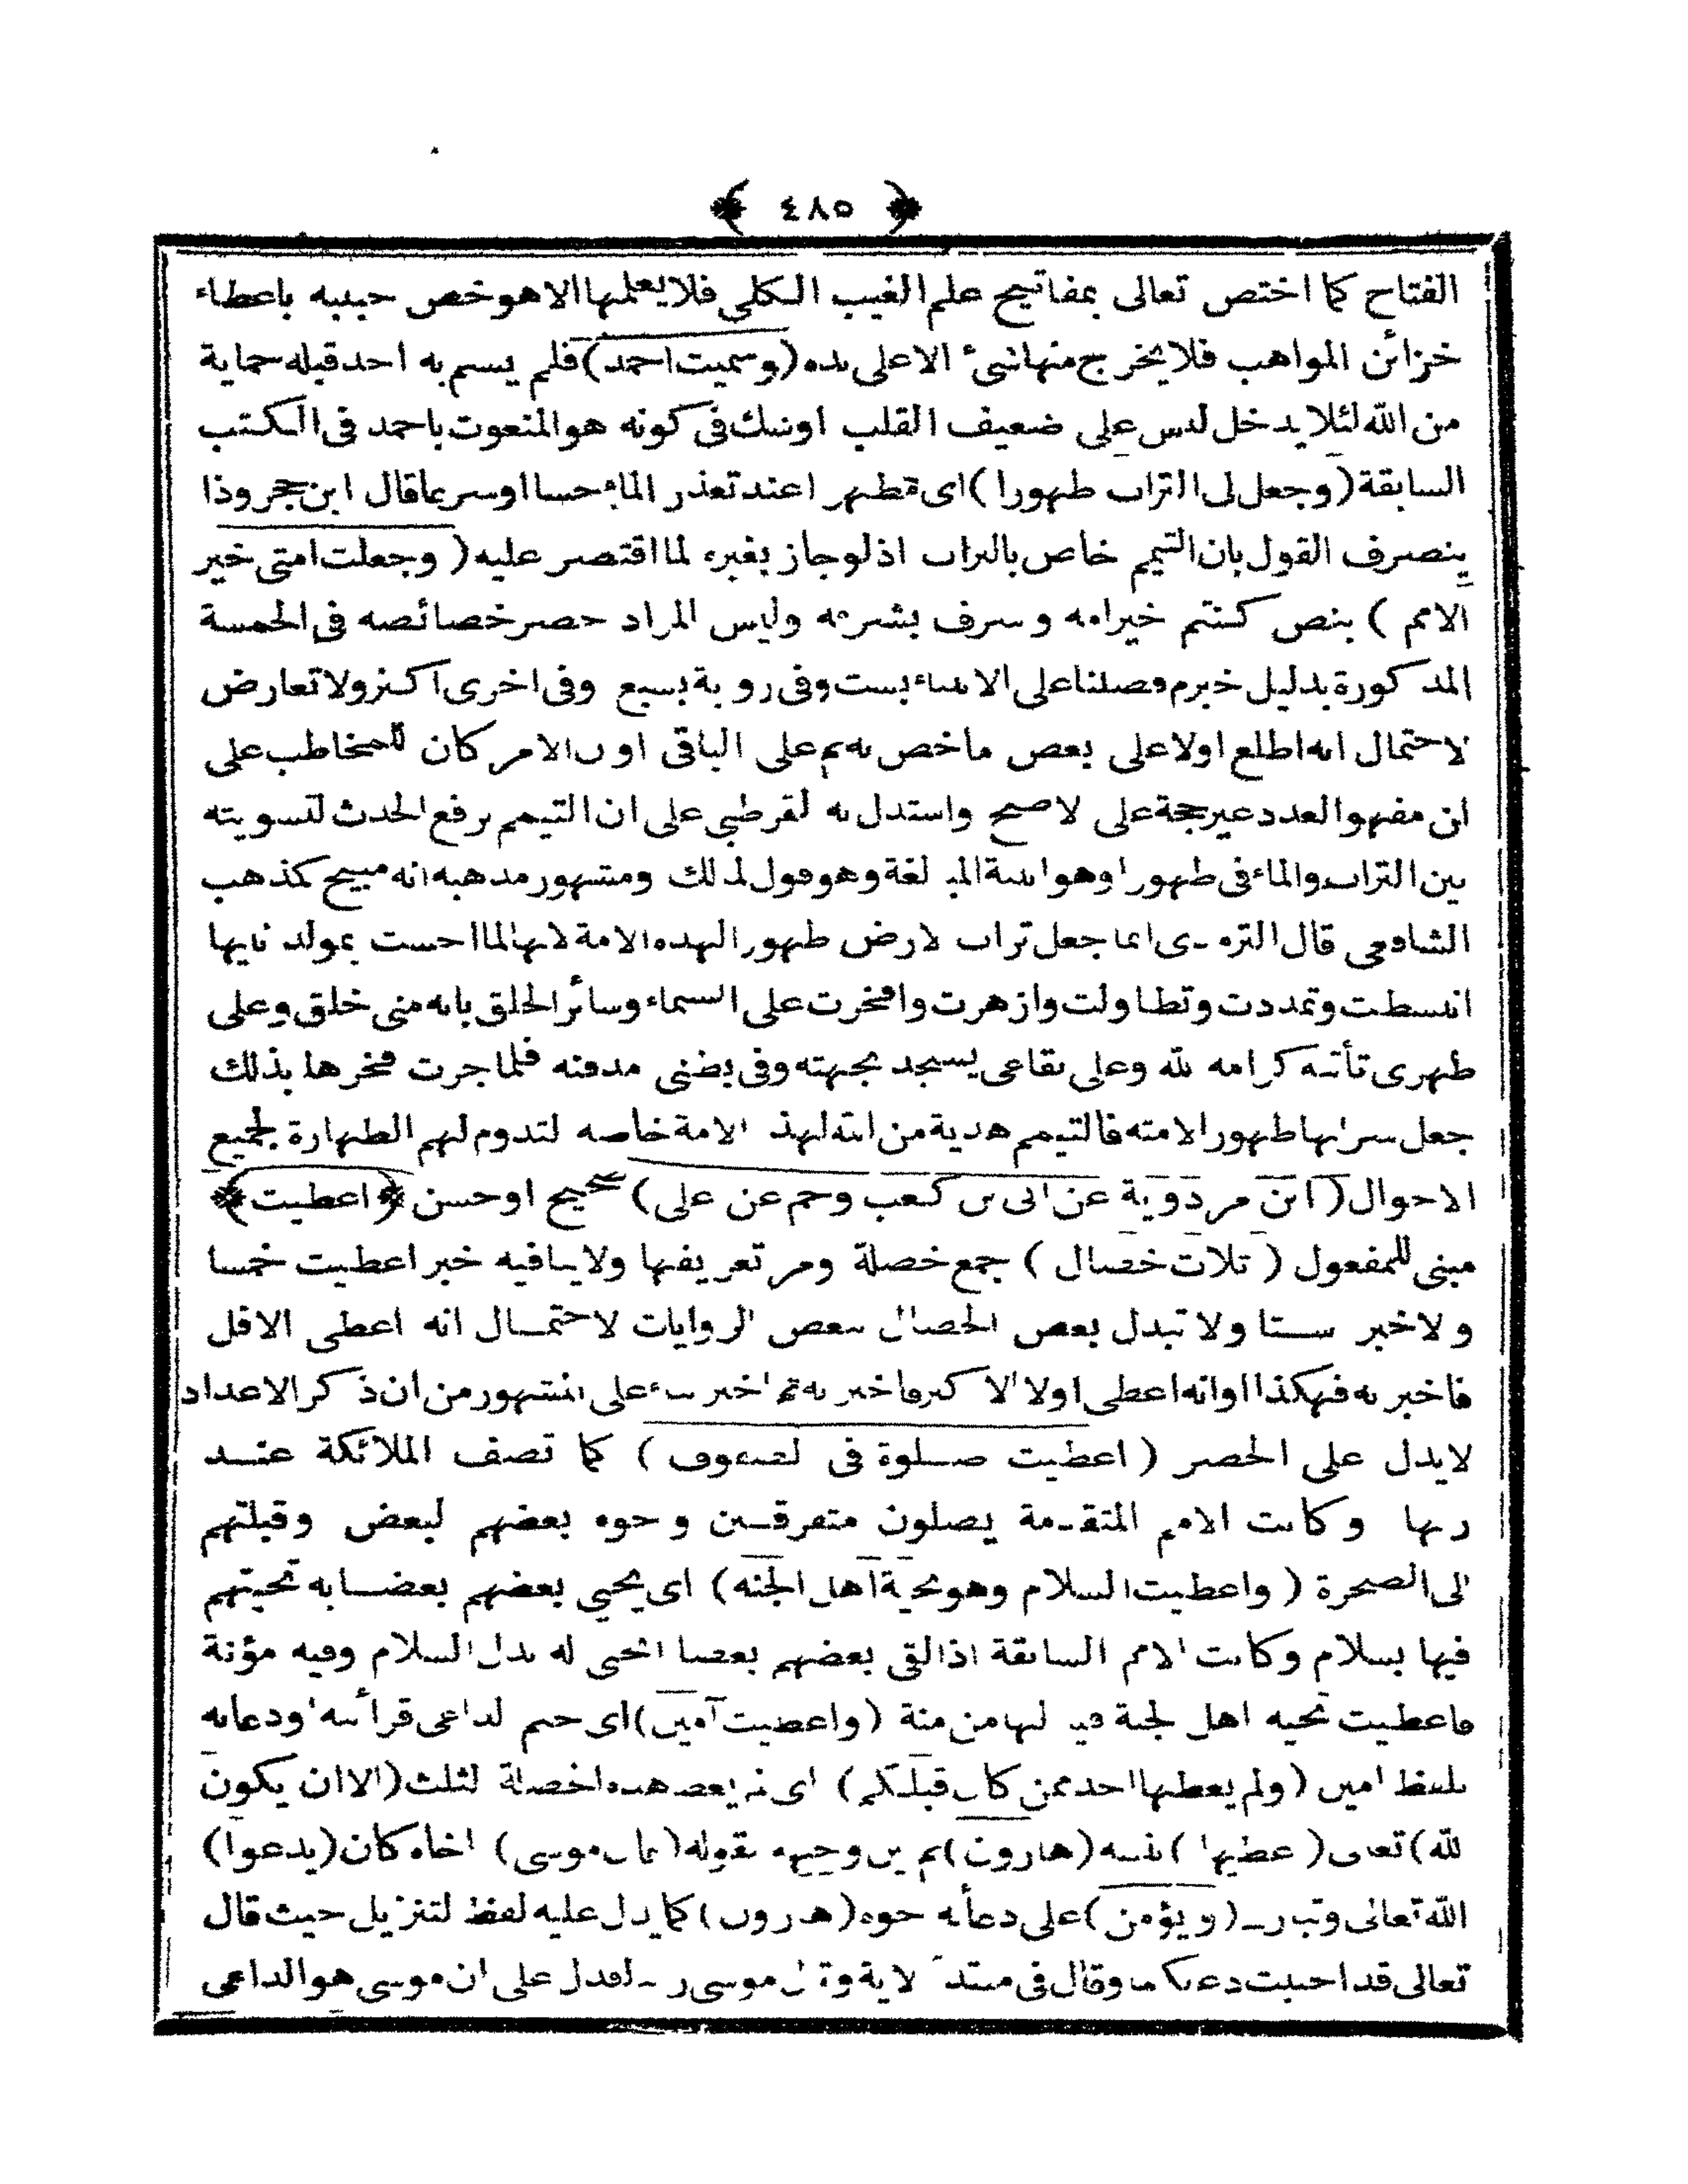 ﴿ ٤٨٥ ﴾
الفتاح كما اختص تعالى بمفاتيح علم الغيب الكلى فلا يعلمها الا هو خص حبيبه باعطاء
خزائن المواهب فلا يخرج منها شئ الا على يده (وسميت احمد) فلم يسم به احد قبله حماية
من الله لئلا يدخل لبس على ضعيف القلب او شك فى كونه هو المنعوت باحمد فى الكتب
السابقة (وجعل لى التراب طهورا) اى مطهرا عند تعذر الماء حسا او شرعا قال ابن حجر وذا
ينصرف القول بان التيمم خاص بالتراب اذ لو جاز بغيره لما اقتصر عليه (وجعلت امتى خير
الامم ) بنص كنتم خير امه وشرف بشرفه وليس المراد حصر خصائصه فى الخمسة
المذكورة بدليل خبر م فضلنا على الانبياء بست وفى رواية بسبع وفى اخرى اكثر ولا تعارض
لاحتمال انه اطلع اولا على بعض ما خص به ثم على الباقى او ان الامر كان للمخاطب على
ان مفهو العدد غير حجة على الاصح واستدل به القرطبى على ان التيمم يرفع الحدث لتسويته
بين التراب والماء فى طهورا وهو ابنية المبالغة وهو قول لمالك ومشهور مذهبه انه مبيح كمذهب
الشافعى قال الترمذى انما جعل تراب الارض طهورا لهذه الامة لانها لما احست بمولد نبيها
انبسطت وتمددت وتطاولت وازهرت وافتخرت على السماء وسائر الخلق بانه منى خلق وعلى
ظهرى تأتيه كرامه الله وعلى بقاعى يسجد بجبهته وفى بطنى مدفنه فلما جرت فخرها بذلك
جعل ترابها طهورا لامته فالتيمم هدية من الله لهذه الامة خاصه لتدوم لهم الطهارة لجميع
الاحوال (ابن مردوية عن ابى بن كعب وحم عن على) صحيح او حسن ﴿اعطيت﴾
مبنى للمفعول ( ثلاث خصال ) جمع خصلة ومر تعريفها ولا ينافيه خبر اعطيت خمسا
ولا خبر ستا ولا تبدل بعض الخصال ببعض الروايات لاحتمال انه اعطى الاقل
فاخبر به فهكذا او انه اعطى اولا الاكثر فاخبر به ثم اخبر بناء على المشهور من ان ذكر الاعداد
لا يدل على الحصر ( اعطيت صلوة فى الصفوف ) كما تصف الملائكة عند
ربها وكانت الامم المتقدمة يصلون متفرقين وجوه بعضهم لبعض وقبلتهم
الى الصخرة ( واعطيت السلام وهو تحية اهل الجنه) اى يحيى بعضهم بعضا به تحيتهم
فيها بسلام وكانت الامم السابقة اذا لقى بعضهم بعضا انحنى له بدل السلام وفيه مؤنة
فاعطيت تحيه اهل الجنة فيا لها من منة (واعطيت آمين) اى ختم الداعى قرائته او دعائه
بلفظ امين (ولم يعطها احد ممن كان قبلكم) اى لم يعط هذه الخصلة الثلث (الا ان يكون
الله) تعالى (اعطيها) نبيه (هارون) ثم بين وجهه بقوله (فان موسى) اخاه كان (يدعوا)
الله تعالى وتبارك (ويؤمن) على دعائه اخوه (هارون) كما يدل عليه لفظ التنزيل حيث قال
تعالى قد اجيبت دعوتكما وقال فى مبتدء الاية وقال موسى ربنا فدل على ان موسى هو الداعى